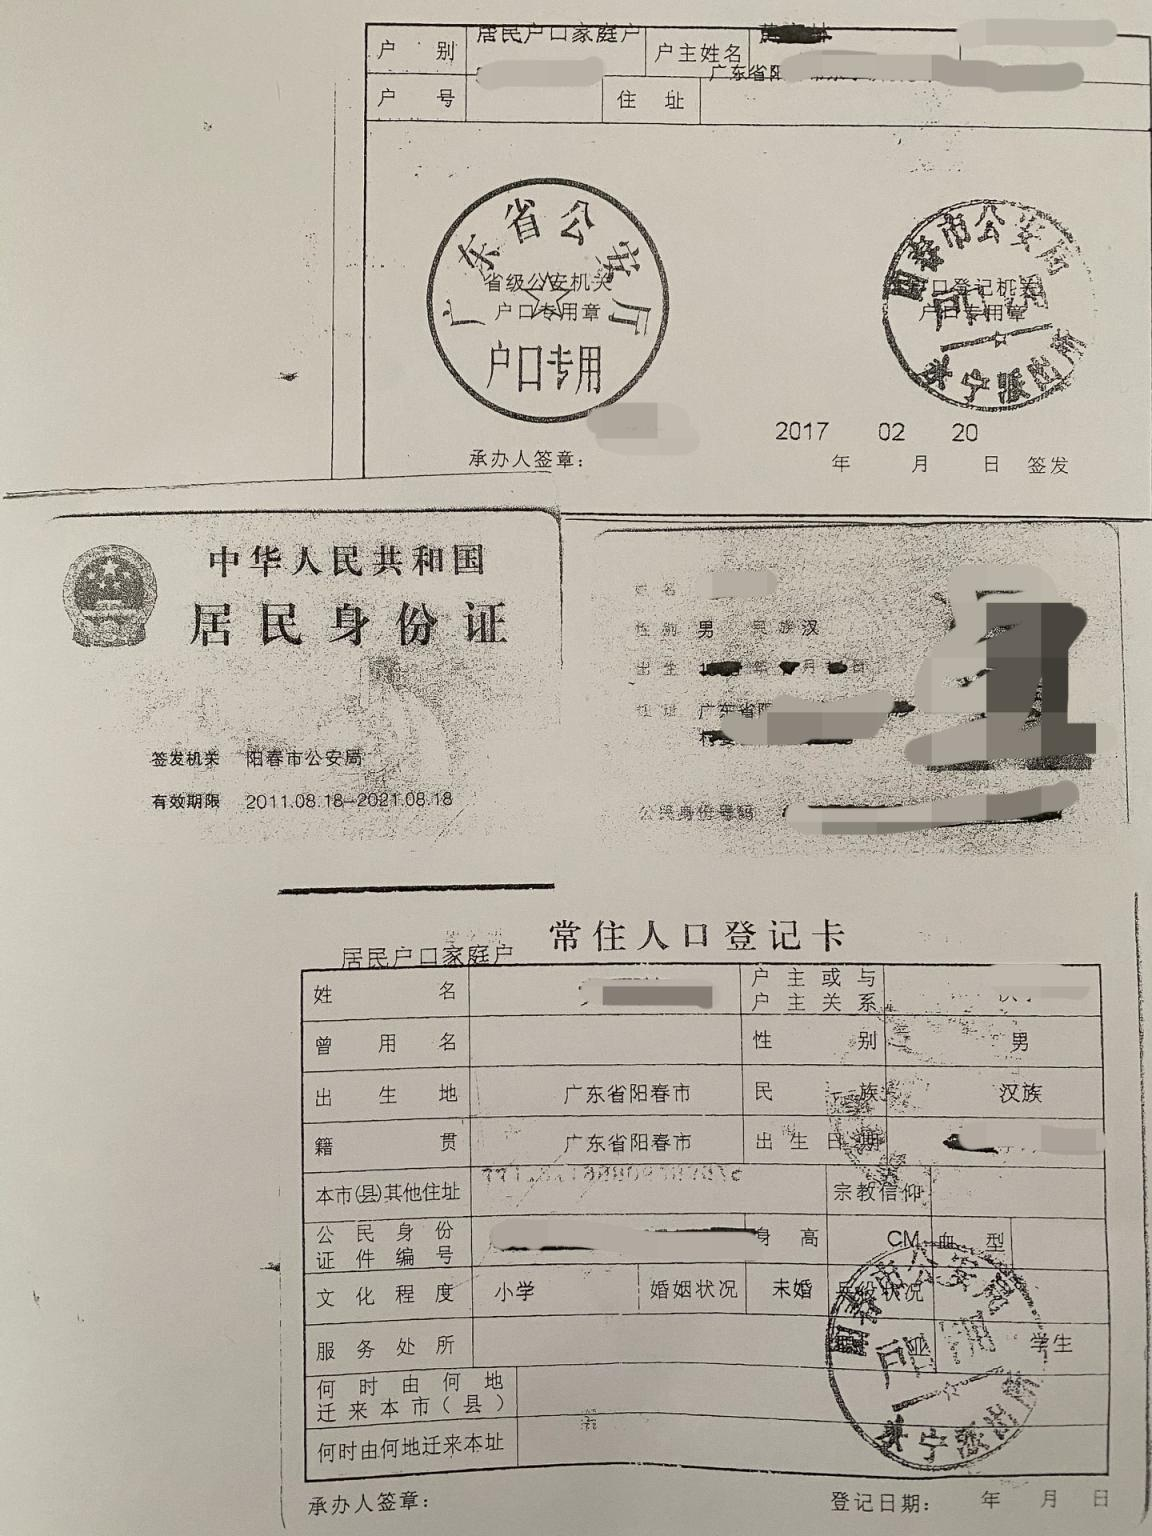 居民户口家庭户
户 别 户主姓名
广东省阳
户 号 住 址
广东省公安厅
省级公安机关
户口专用章
户口专用
阳春市公安局
口登记机关
户口专用章
派出所
2017 02 20
承办人签章： 年 月 日 签发
中华人民共和国
居民身份证
签发机关 阳春市公安局
有效期限 2011.08.18-2021.08.18
姓 名
性 别 男 民 族 汉
出 生 年 月 日
住 址 广东省阳
公民身份号码
常住人口登记卡
居民户口家庭户
姓 名 户主或与户主关系
曾 用 名 性 别 男
出 生 地 广东省阳春市 民 族 汉族
籍 贯 广东省阳春市 出生日期
本市(县)其他住址 宗教信仰
公民身份证件编号 身 高 CM 血 型
文化程度 小学 婚姻状况 未婚 兵役状况
服务处所 学生
何时由何地迁来本市（县）
何时由何地迁来本址
阳春市公安局
派出所
承办人签章： 登记日期： 年 月 日